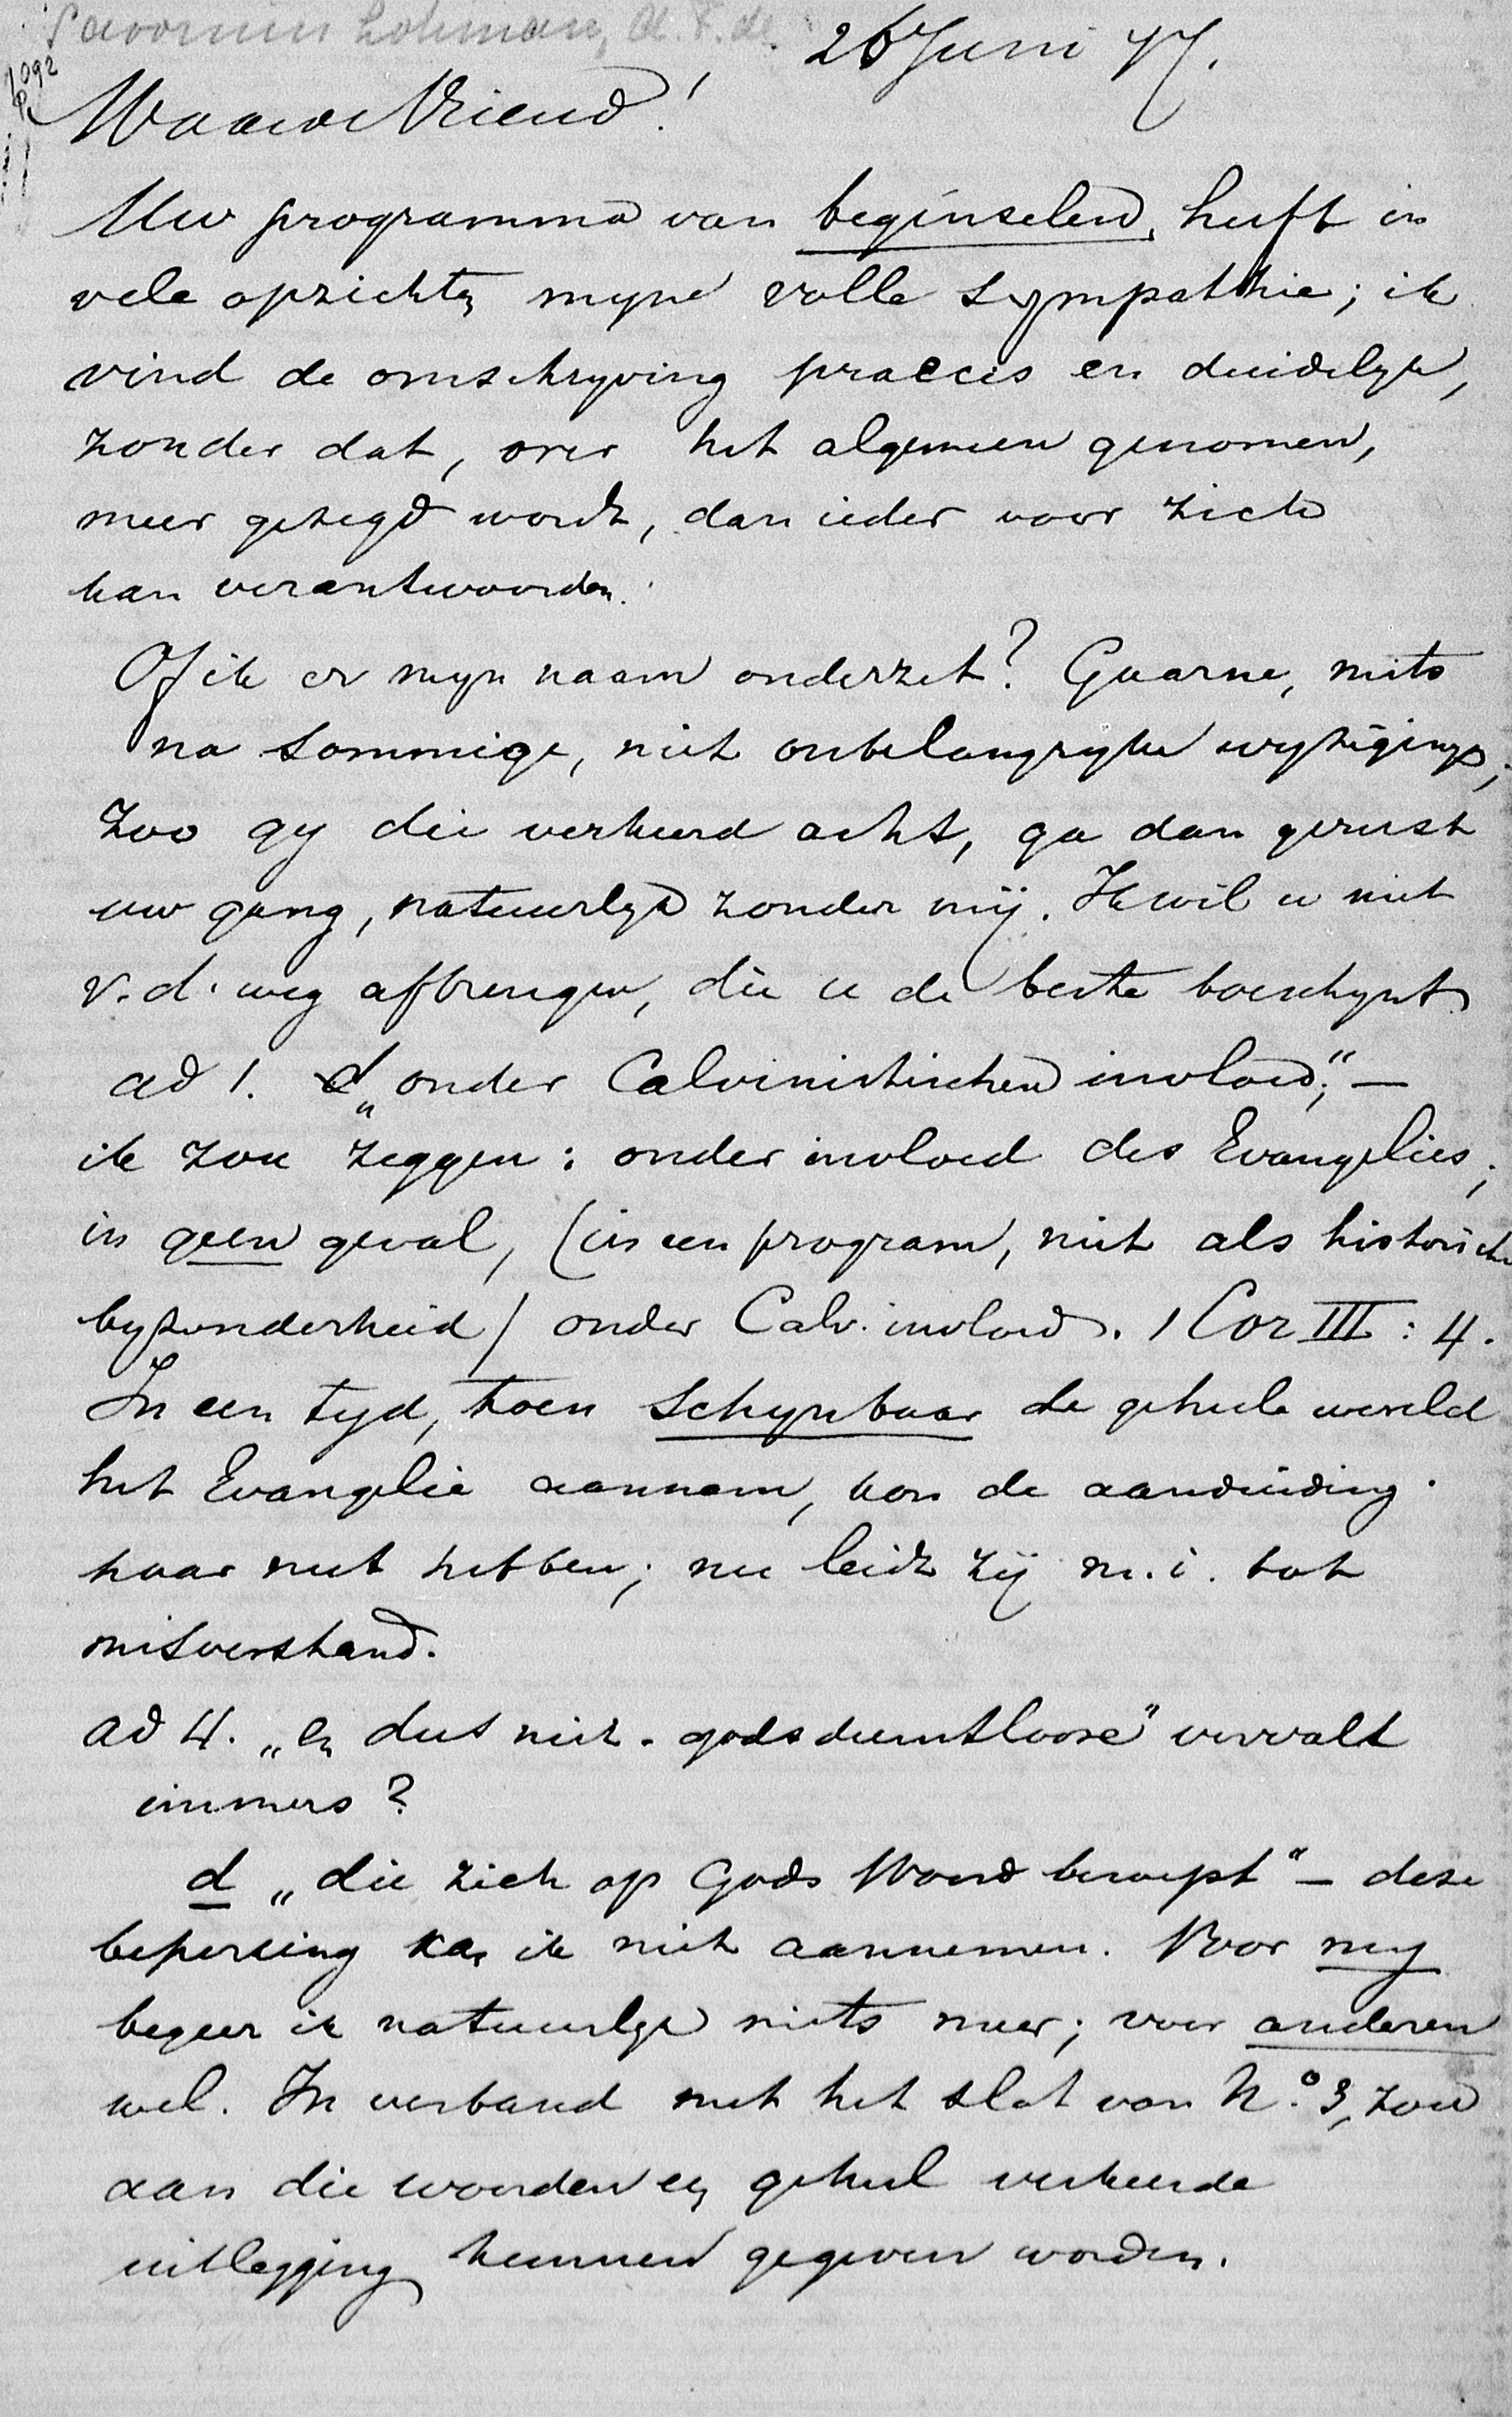 Savornin Lohman, A.F. de
26 Juni 77.
1092
Waarde Vriend!
Uw programma van beginselen, heeft in
vele opzichten myne volle sympathie; ik
vind de omschryving praecies en duidelyk,
zonder dat, over het algemeen genomen,
meer gezegd wordt, dan ieder voor zich
kan verantwoorden.
Of ik er myn naam onderzet? Gaarne, mits
na sommige, niet onbelangryke wyzigingen;
zoo gy die verkeerd acht, ga dan gerust
uw gang, natuurlyk zonder mij. Ik wil u niet
v.d. weg afbrengen, die u de beste toeschynt.
ad 1. „onder Calvinistischen invloed;" —
ik zou zeggen: onder invloed des Evangelies;
in geen geval, (in een program, niet als historische
byzonderheid) onder Calv. invloed. 1 Cor III : 4.
In een tyd, toen schynbaar de geheele wereld
het Evangelie aannam, kon de aanduiding
haar nut hebben; nu leidt zij m.i. tot
misverstand.
ad 4. „en dus niet-godsdienstloose" vervalt
immers?
d „die zich op Gods Woord beroept" — deze
beperking kan ik niet aannemen. Voor my
begeer ik natuurlyk niets meer; voor anderen
wel. In verband met het slot van No. 3, zou
aan die woorden een geheel verkeerde
uitlegging kunnen gegeven worden.